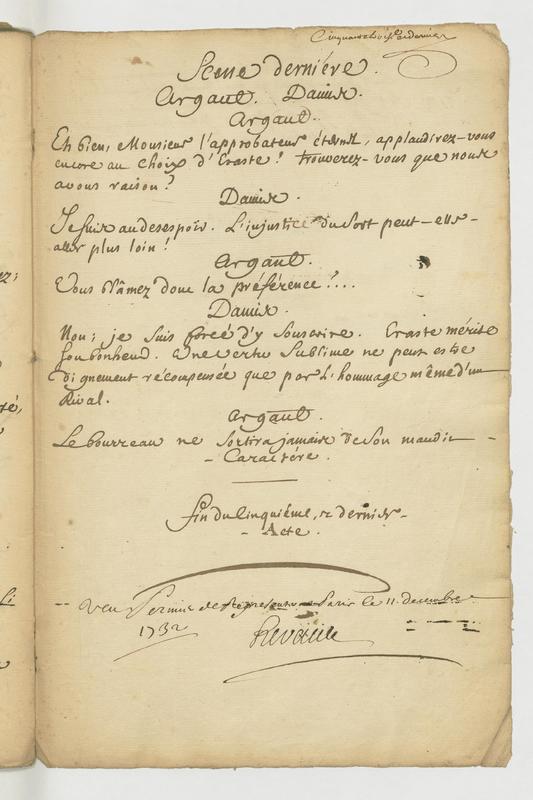 Cinquante trois et dernier
Scene derniére.
Argant. Damis.
Argant.
Eh bien, Monsieur l'approbateur éternel, applaudirez-vous
encore au choix d'Eraste! trouverez-vous que nous
avons raison?
Damis.
Je suis au desespoir. L'injustice du Sort peut-elle
aller plus loin!
Argant.
Vous blâmez donc la préférence!...
Damis.
Non; je suis forcé d'y souscrire. Eraste mérite
son bonheur. Une vertu sublime ne peut estre
dignement récompensée que par l'hommage même d'un
Rival.
Argant.
Le bourreau ne Sortira jamais de Son maudit
Caractére.
Fin du Cinquiéme, et dernier
Acte.
Veu Permis de Representer a Paris le 11 decembre
1732